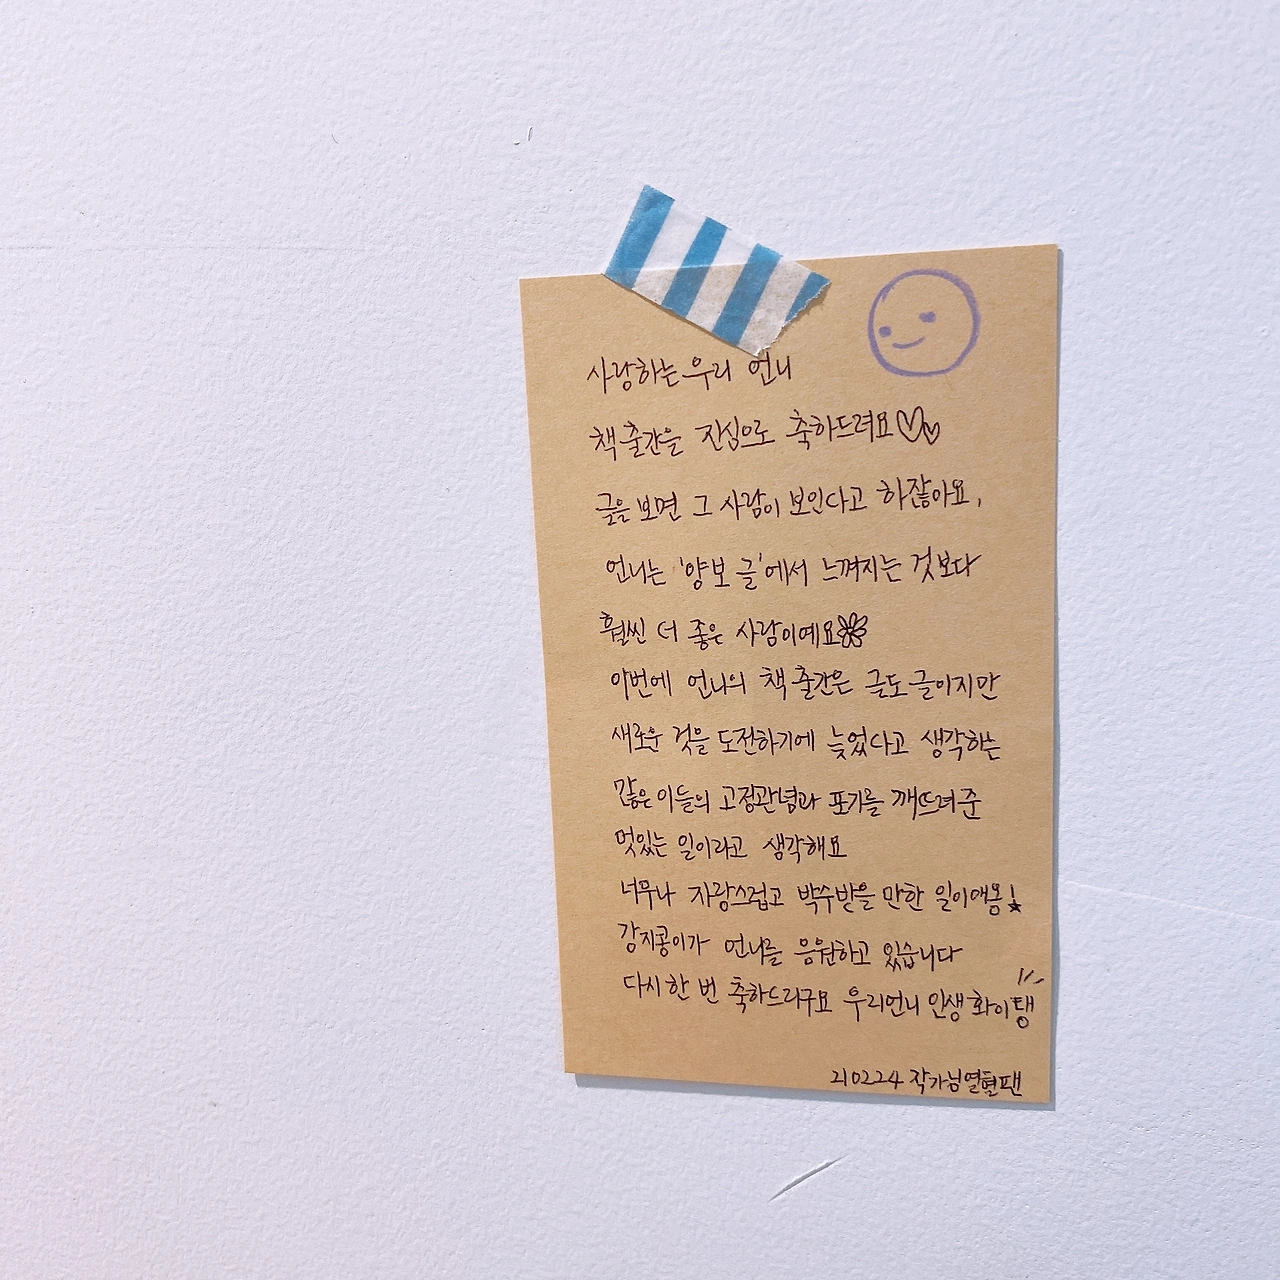 사랑하는 우리 언니
책 출간을 진심으로 축하드려요♡♡
글을 보면 그 사람이 보인다고 하잖아요,
언니는 '양보 글'에서 느껴지는 것보다
훨씬 더 좋은 사람이예요
이번에 언니의 책 출간은 글도 글이지만
새로운 것을 도전하기에 늦었다고 생각하는
많은 이들의 고정관념과 포기를 깨뜨려준
멋있는 일이라고 생각해요
너무나 자랑스럽고 박수받을 만한 일이애옹!
강지콩이가 언니를 응원하고 있습니다
다시 한 번 축하드리구요 우리언니 인생 화이탱
210224 작가님열혈팬